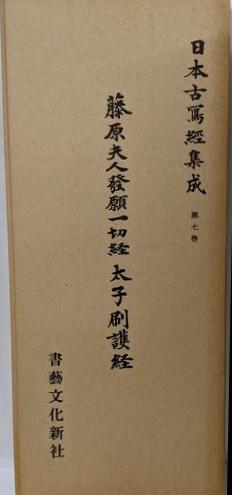 日本古寫經集成
第七巻
藤原夫人發願一切経 太子刷護経
書藝文化新社